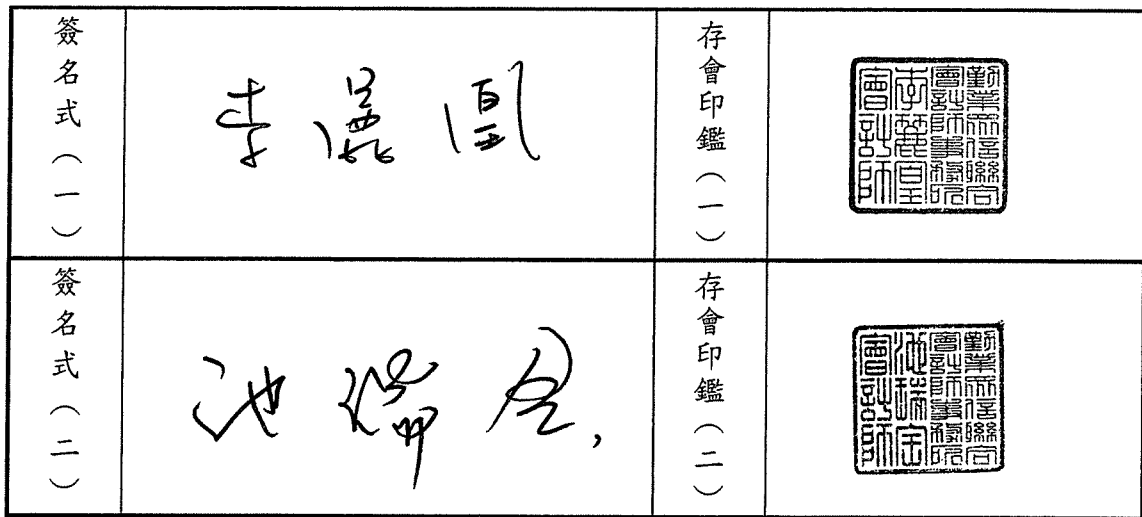 簽名式（一）
李麗凰
存會印鑑（一）
勤業眾信聯合
會計師事務所
李麗凰
會計師
簽名式（二）
池瑞全
存會印鑑（二）
勤業眾信聯合
會計師事務所
池瑞全
會計師